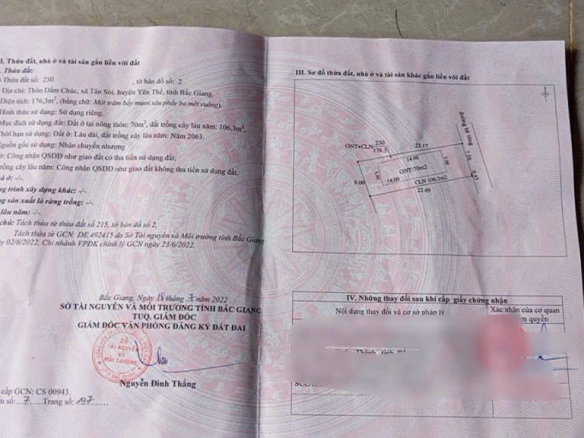 II. Thửa đất, nhà ở và tài sản gắn liền với đất
1. Thửa đất:
a) Thửa đất số: 230 , tờ bản đồ số: 2
Địa chỉ: Thôn Đầm Chúc, xã Tân Sỏi, huyện Yên Thế, tỉnh Bắc Giang,
Diện tích: 176,3m², (bằng chữ: Một trăm bảy mươi sáu phẩy ba mét vuông).
Hình thức sử dụng: Sử dụng riêng,
Mục đích sử dụng đất: Đất ở tại nông thôn: 70m², đất trồng cây lâu năm: 106,3m².
Thời hạn sử dụng: Đất ở: Lâu dài, đất trồng cây lâu năm: Năm 2063.
Nguồn gốc sử dụng: Nhận chuyển nhượng
ở: Công nhận QSDĐ như giao đất có thu tiền sử dụng đất,
trồng cây lâu năm: Công nhận QSDĐ như giao đất không thu tiền sử dụng đất.
nhà ở: -/-.
công trình xây dựng khác: -/-.
rừng sản xuất là rừng trồng: -/-.
lâu năm: -/-.
chú: Tách thửa từ thửa đất số 215, tờ bản đồ số 2.
Tách thửa từ GCN: DE 492415 do Sở Tài nguyên và Môi trường tỉnh Bắc Giang
ngày 02/6/2022, Chi nhánh VPĐK chỉnh lý GCN ngày 23/6/2022.
Bắc Giang, Ngày 18 tháng 7 năm 2022
SỞ TÀI NGUYÊN VÀ MÔI TRƯỜNG TỈNH BẮC GIANG
TUQ. GIÁM ĐỐC
GIÁM ĐỐC VĂN PHÒNG ĐĂNG KÝ ĐẤT ĐAI
SỞ
TÀI NGUYÊN
VÀ
MÔI TRƯỜNG
Nguyễn Đình Thắng
cấp GCN: CS 00943.
số: 7 Trang số: 197
III. Sơ đồ thửa đất, nhà ở và tài sản khác gắn liền với đất
đường bê tông
ONT+CLN 230
176.3
23.17
14.00
ONT 70m2
8.00
14.00
CLN 106.3m2
22.49
IV. Những thay đổi sau khi cấp giấy chứng nhận
Nội dung thay đổi và cơ sở pháp lý
Xác nhận của cơ quan
thẩm quyền